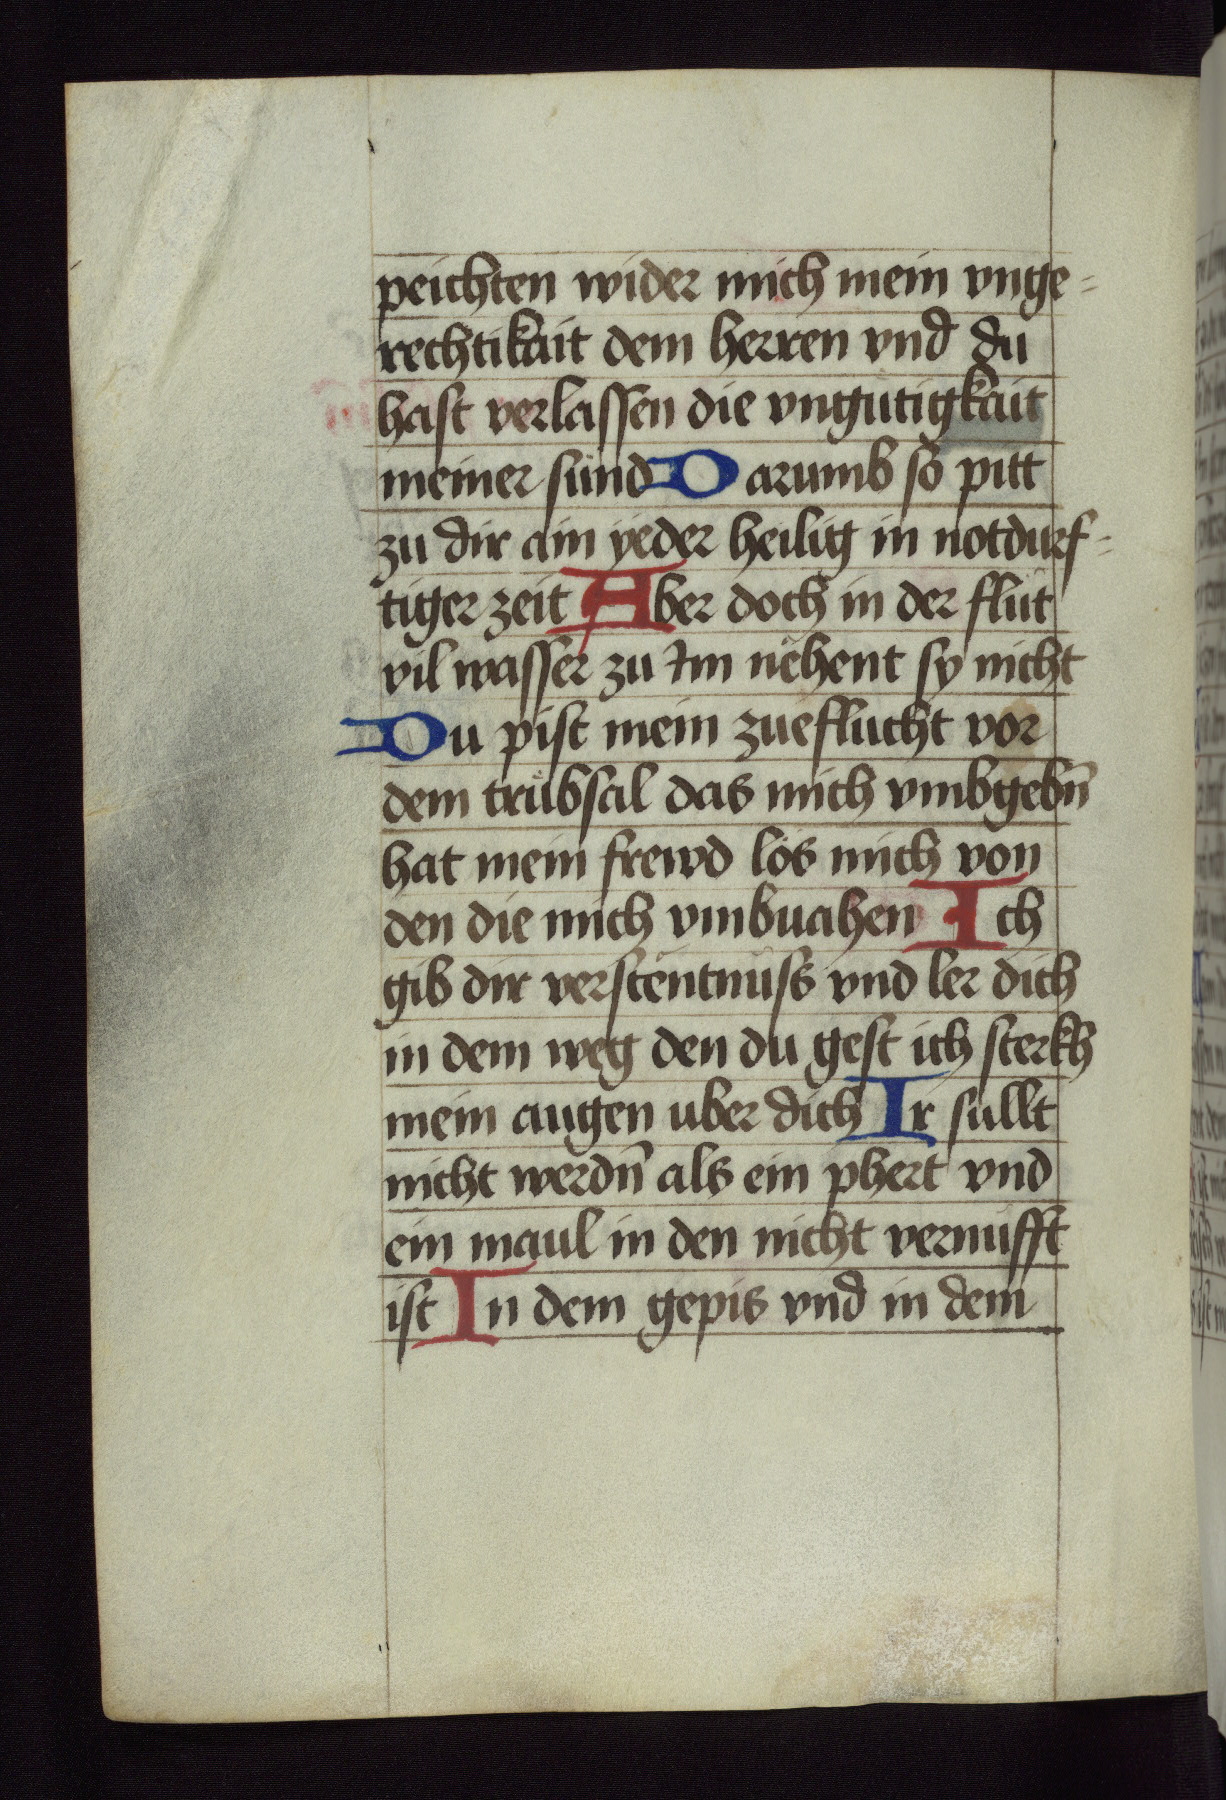 peichten wider mich mein vnge-
rechtikait dem herren vnd du
hast verlassen die vngütigkait
meiner sünd Darumb so pitt
zu dir ain yeder heilig in notdurf-
tiger zeit Aber doch in der flüt
vil wasser zu Im nëhent sy nicht
Du pist mein zueflucht vor
dem trübsal das mich vmbgebn̄
hat mein frewd lös mich von
den die mich vmbuahen Ich
gib dir verstëntnüss vnd ler dich
in dem weg den du gest ich sterkh
mein augen uber dich Ir süllt
nicht werdn̄ als ein phert vnd
ein maul in den nicht vernüfft
ist In dem gepis vnd in dem